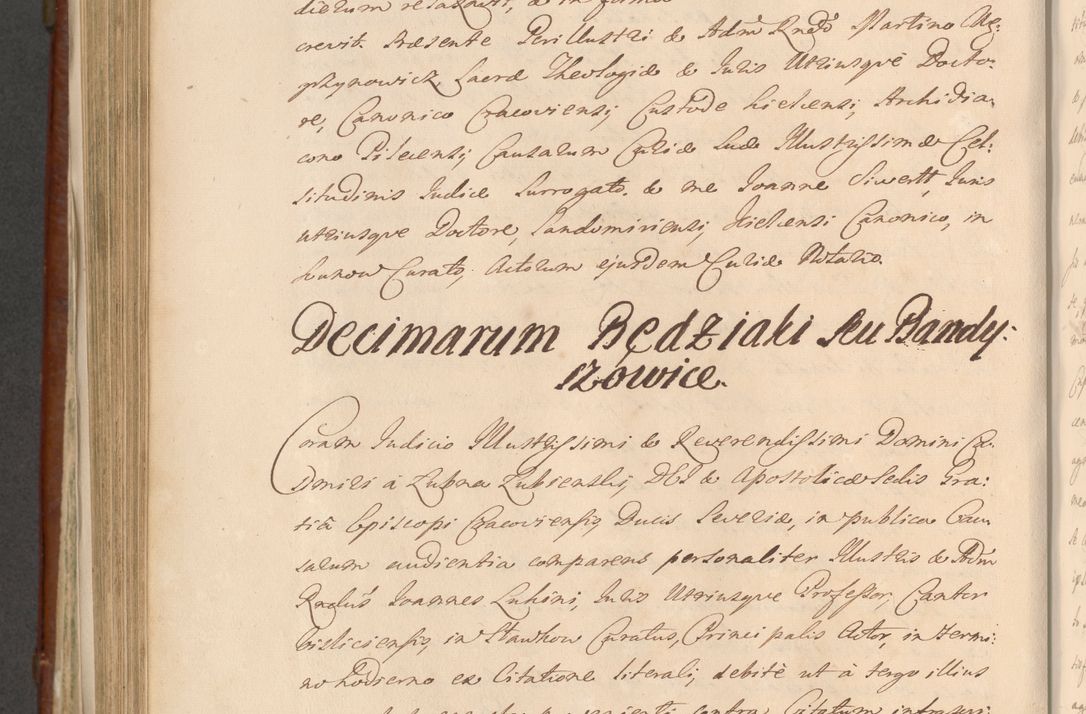 crevit. Præsente Perillustri & Adm Rndo Martino We,
ghrynowicz, Sacræ Theologiæ & Juris Utriusque Docto,
re, Canonico Cracoviensi, Custode Kielcensi, Archidia,
cono Pilecensi, Causarum Curiæ Suæ Illustrissimæ Cel:
situdinis Iudice Surrogato, & me Ioanne Siwertt, Iuris
utriusque Doctore, Sandomiriensi, Kielcensi Canonico, in
Kunow Curato, Actorum ejusdem Curiæ Notario.
Decimarum Będziaki seu Bandy:
szowice.
Coram Iudicio Illustrissimi & Reverendissimi Domini Ca:
simiri à Łubna Łubienski, DEI & Apostolicæ Sedis Gra:
tiâ Episcopi Cracoviensis, Ducis Severiæ, in publica Cau
sarum audientia comparens personaliter Illustris & Adm
Rndus Ioannes Luhini, Iuris Utriusque Professor, Cantor
Visliciensis, in Staszkow Curatus, Principalis Actor, in termi:
no hodierno ex Citatione literali, debitè ut à tergo illius